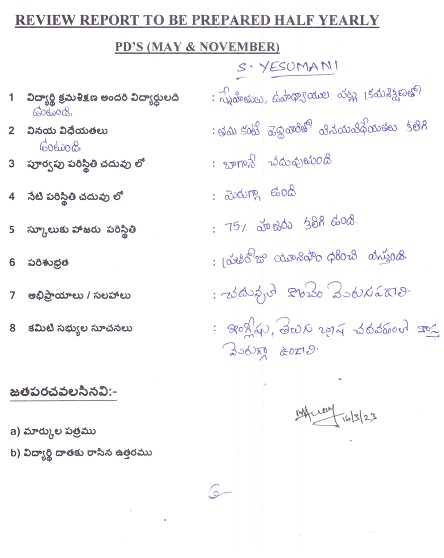 REVIEW REPORT TO BE PREPARED HALF YEARLY
PD'S (MAY & NOVEMBER)
S. YESUMANI
1 విద్యార్థి క్రమశిక్షణ అందరి విద్యార్థులది : స్నేహితులు, ఉపాధ్యాయుల పట్ల క్రమశిక్షణతో
ఉంటుంది.
2 వినయ విధేయతలు : తమ కంటే పెద్దవారితో వినయవిధేయతలు కలిగి
ఉంటుంది
3 పూర్వపు పరిస్థితి చదువు లో : బాగానే చదువుతుంది
4 నేటి పరిస్థితి చదువు లో : మెరుగ్గా ఉంది
5 స్కూలుకు హాజరు పరిస్థితి : 75% హాజరు కలిగి ఉంది.
6 పరిశుభ్రత : ప్రతిరోజూ యూనిఫాం ధరించి వస్తుంది.
7 అభిప్రాయాలు / సలహాలు : చదువులో కొంచెం మెరుగుపడాలి.
8 కమిటి సభ్యుల సూచనలు : ఇంగ్లీషు, తెలుగు భాష చదవడంలో కాస్త
మెరుగ్గా ఉండాలి.
జతపరచవలసినవి:-
16/3/23
a) మార్కుల పత్రము
b) విద్యార్థి దాతకు రాసిన ఉత్తరము